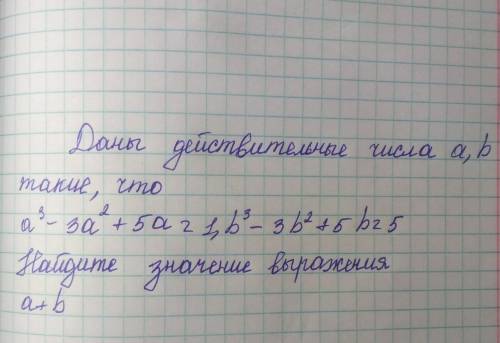 Даны действительные числа a, b
такие, что
a³ - 3a² + 5a = 1, b³ - 3b² + 5b = 5
Найдите значение выражения
a+b